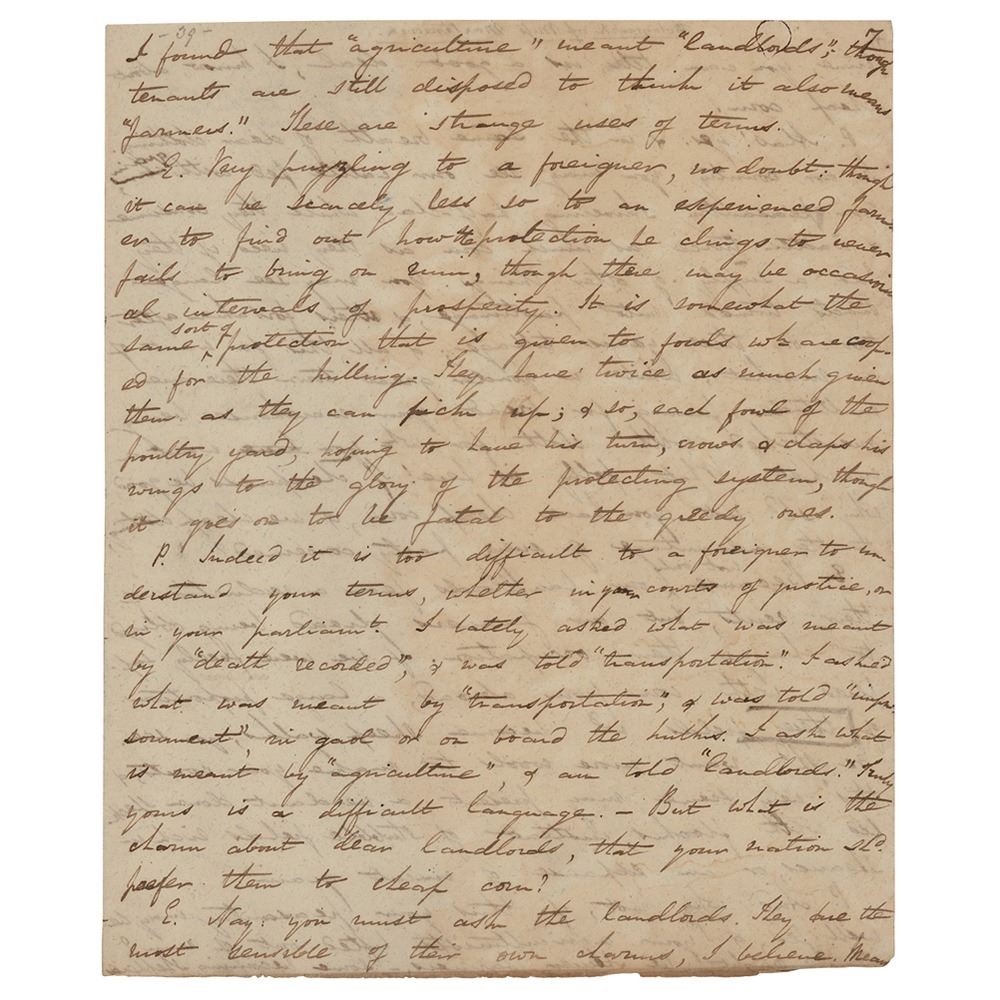 - 39 -
7
I found that "agriculture" meant "landlords"; though
tenants are still disposed to think it also means
"farmers." These are strange uses of terms.
E. Very puzzling to a foreigner, no doubt: though
it can be scarcely less so to an experienced farm-
er to find out how the protection he clings to never
fails to bring on ruin, though there may be occasion-
al intervals of prosperity. It is somewhat the
same sort of protection that is given to fowls wh are coop-
ed for the killing. They have twice as much given
them as they can pick up; & so, each fowl of the
poultry yard, hoping to have his turn, crows & claps his
wings to the glory of the protecting system, though
it goes on to be fatal to the greedy ones.
P. Indeed it is too difficult to a foreigner to un-
derstand your terms, whether in your courts of justice, or
in your parliamt. I lately asked what was meant
by "death recorded", & was told "transportation". I asked
what was meant by "transportation"; & was told "impri-
sonment", in gaol or on board the hulks. I ask what
is meant by "agriculture", & am told "landlords." Truly
yours is a difficult language. - But what is the
charm about dear landlords, that your nation shd.
prefer them to cheap corn?
E. Nay: you must ask the landlords. They are the
most sensible of their own charms, I believe. Mean